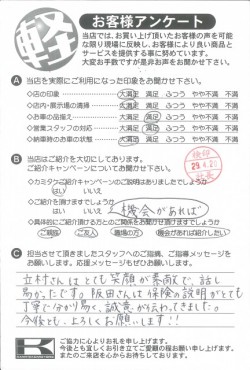 軽
お客様アンケート
当店では、お買い上げ頂いたお客様の声を可能
な限り現場に反映し、お客様により良い商品と
サービスを提供する事に努めています。
大変お手数ですが是非お声をお聞かせ下さい。
A 当店を実際にご利用になった印象をお聞かせ下さい。
◇店の印象 大満足 満足 ふつう やや不満 不満
◇店内・展示場の清掃 大満足 満足 ふつう やや不満 不満
◇お車の品揃え 大満足 満足 ふつう やや不満 不満
◇営業スタッフの対応 大満足 満足 ふつう やや不満 不満
◇納車時のお車の状態 大満足 満足 ふつう やや不満 不満
B 当店はご紹介を大切にしております。
ご紹介キャンペーンについてお聞かせ下さい。
◇カミタケご紹介キャンペーンのご説明はありましたでしょうか
はい いいえ
◇ご紹介を頂けますでしょうか
はい いいえ 機会があれば
◇具体的にご紹介頂ける方とのご関係をお聞かせ頂けますでしょうか
ご親戚 ご友人 職場の方 機会があれば紹介したい
C 担当させて頂きましたスタッフへのご指摘、ご指導メッセージを
お願い致します。応援メッセージもぜひお願いします。
立村さんはとても笑顔が素敵で、話し
易かったです。阪田さんは保険の説明がとても
丁寧で分かり易く、誠意が伝わってきました。
今後とも、よろしくお願いします!!
K
ご協力に心よりお礼を申し上げます。
今後とも宜しくお引き立てご愛顧の程お願い申し上げます。
またのご来店を心からお待ちしております。